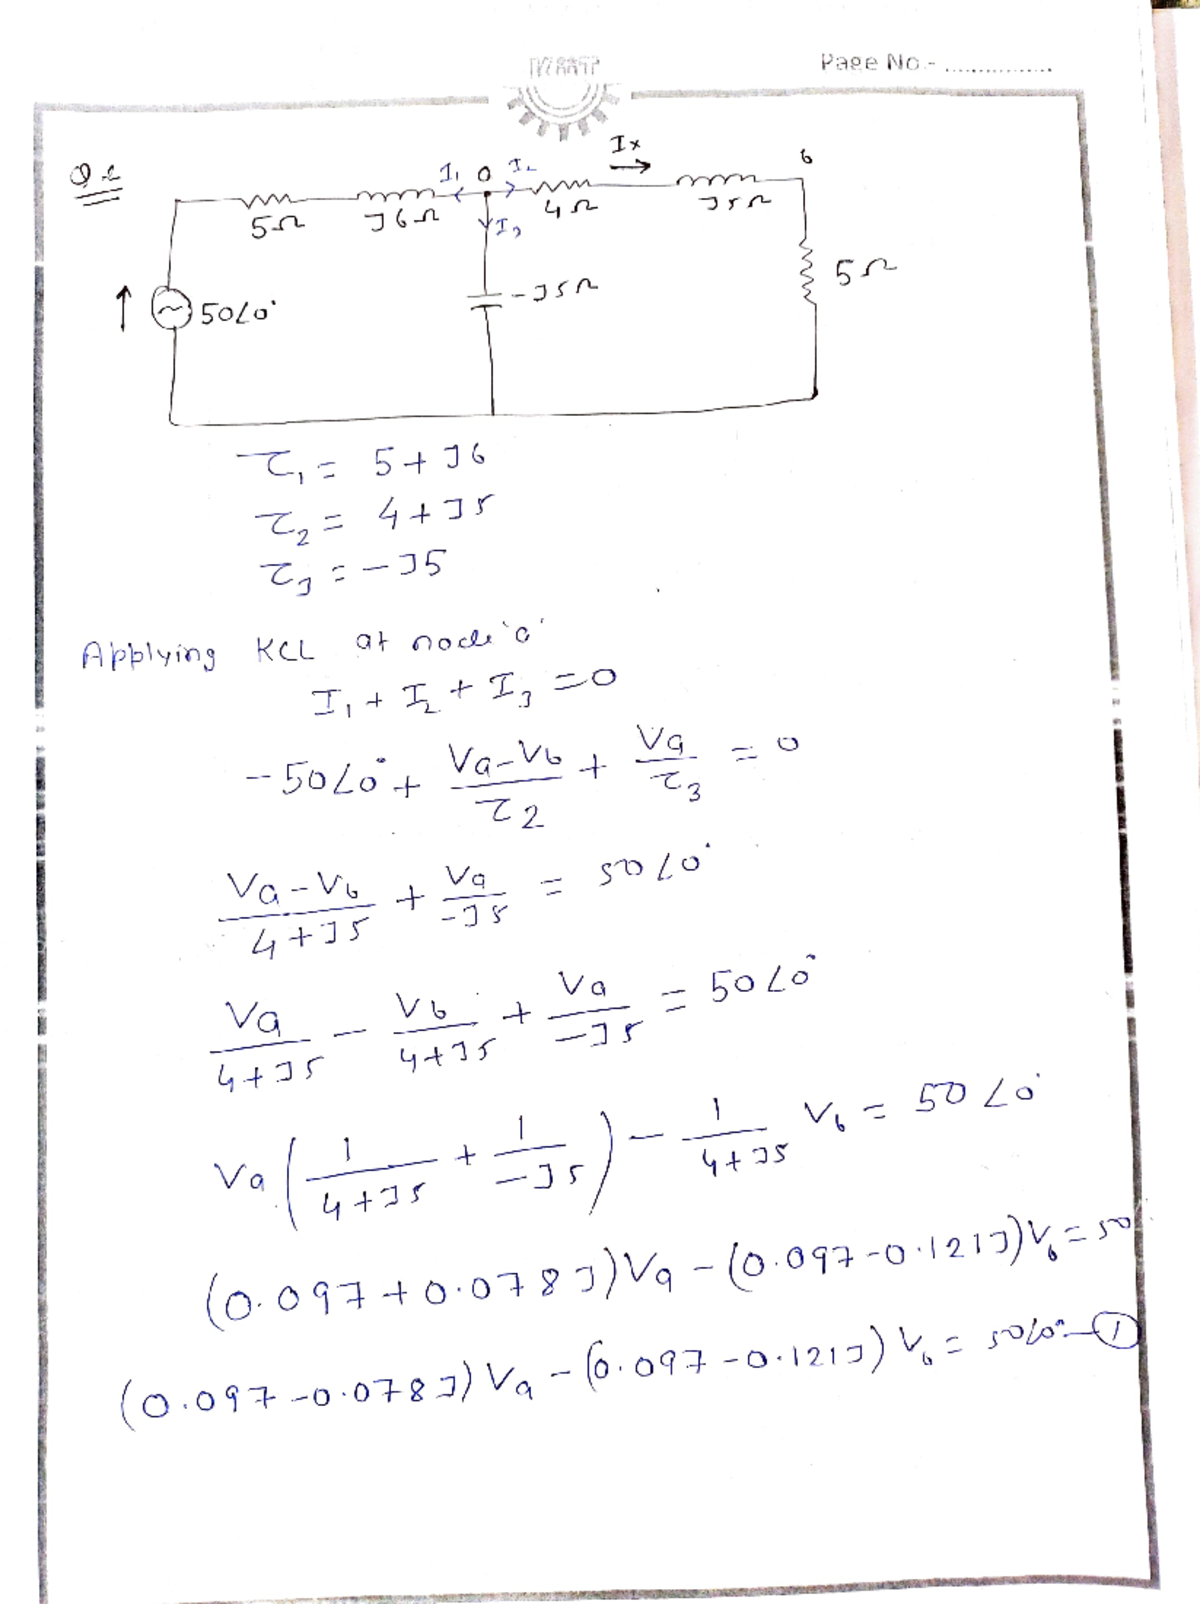 Page No.- ...............
Q.2
5Ω J6Ω I₁ a I₂ 4Ω Ix J5Ω b
I₃
50∠0° -J5Ω 5Ω
Z₁ = 5+J6
Z₂ = 4+J5
Z₃ = -J5
Applying KCL at node 'a'
I₁ + I₂ + I₃ = 0
-50∠0° + (Va-Vb)/Z2 + Va/Z3 = 0
(Va-Vb)/(4+J5) + Va/(-J5) = 50∠0°
Va/(4+J5) - Vb/(4+J5) + Va/(-J5) = 50∠0°
Va (1/(4+J5) + 1/(-J5)) - 1/(4+J5) Vb = 50∠0°
(0.097+0.078J)Va - (0.097-0.121J)Vb = 50
(0.097-0.078J)Va - (0.097-0.121J)Vb = 50∠0° - ①